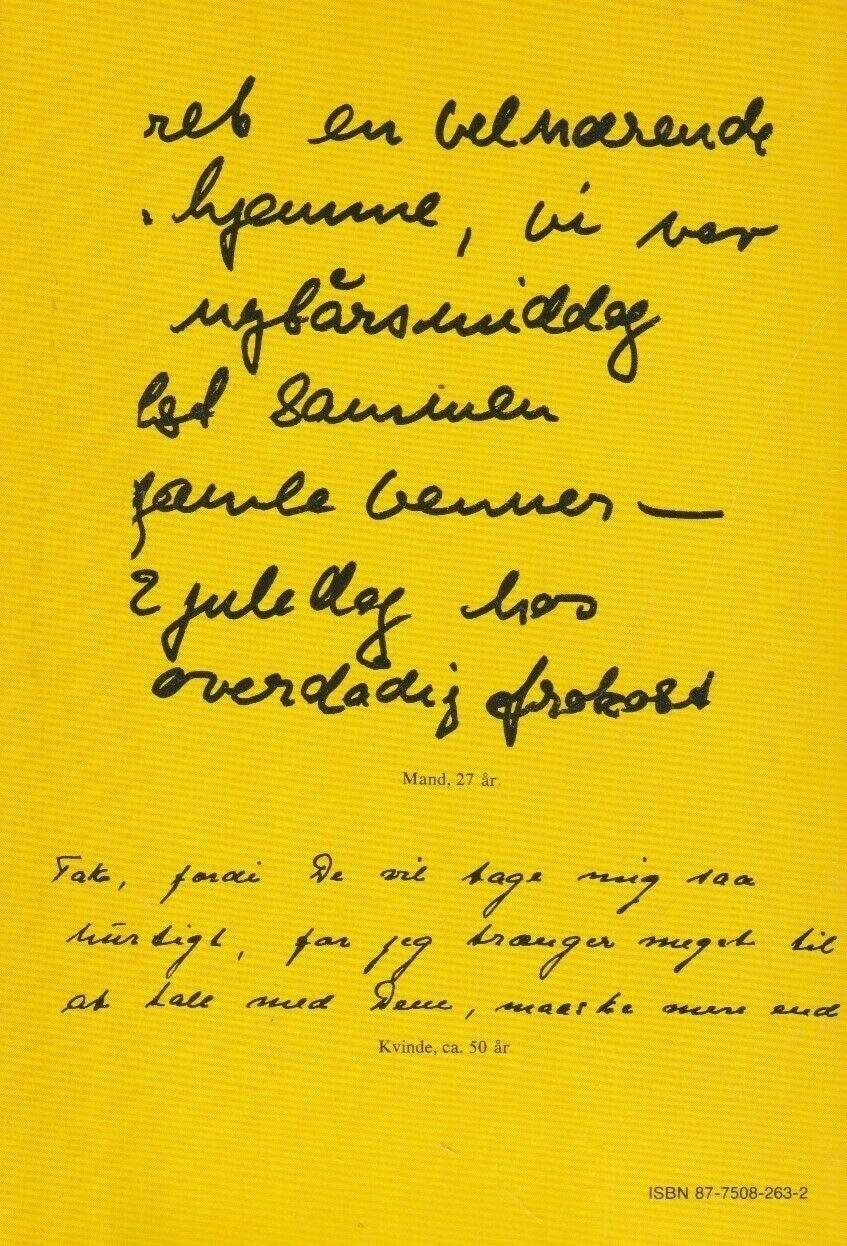 ret en velnærende
hjemme, vi var
nytårsmiddag
sammen
gamle venner —
2 juledag hos
overdådig frokost
Mand, 27 år.
Tak, fordi De vil tage mig saa
hurtigt, for jeg trænger meget til
at tale med Dem, maaske mere end
Kvinde, ca. 50 år
ISBN 87-7508-263-2